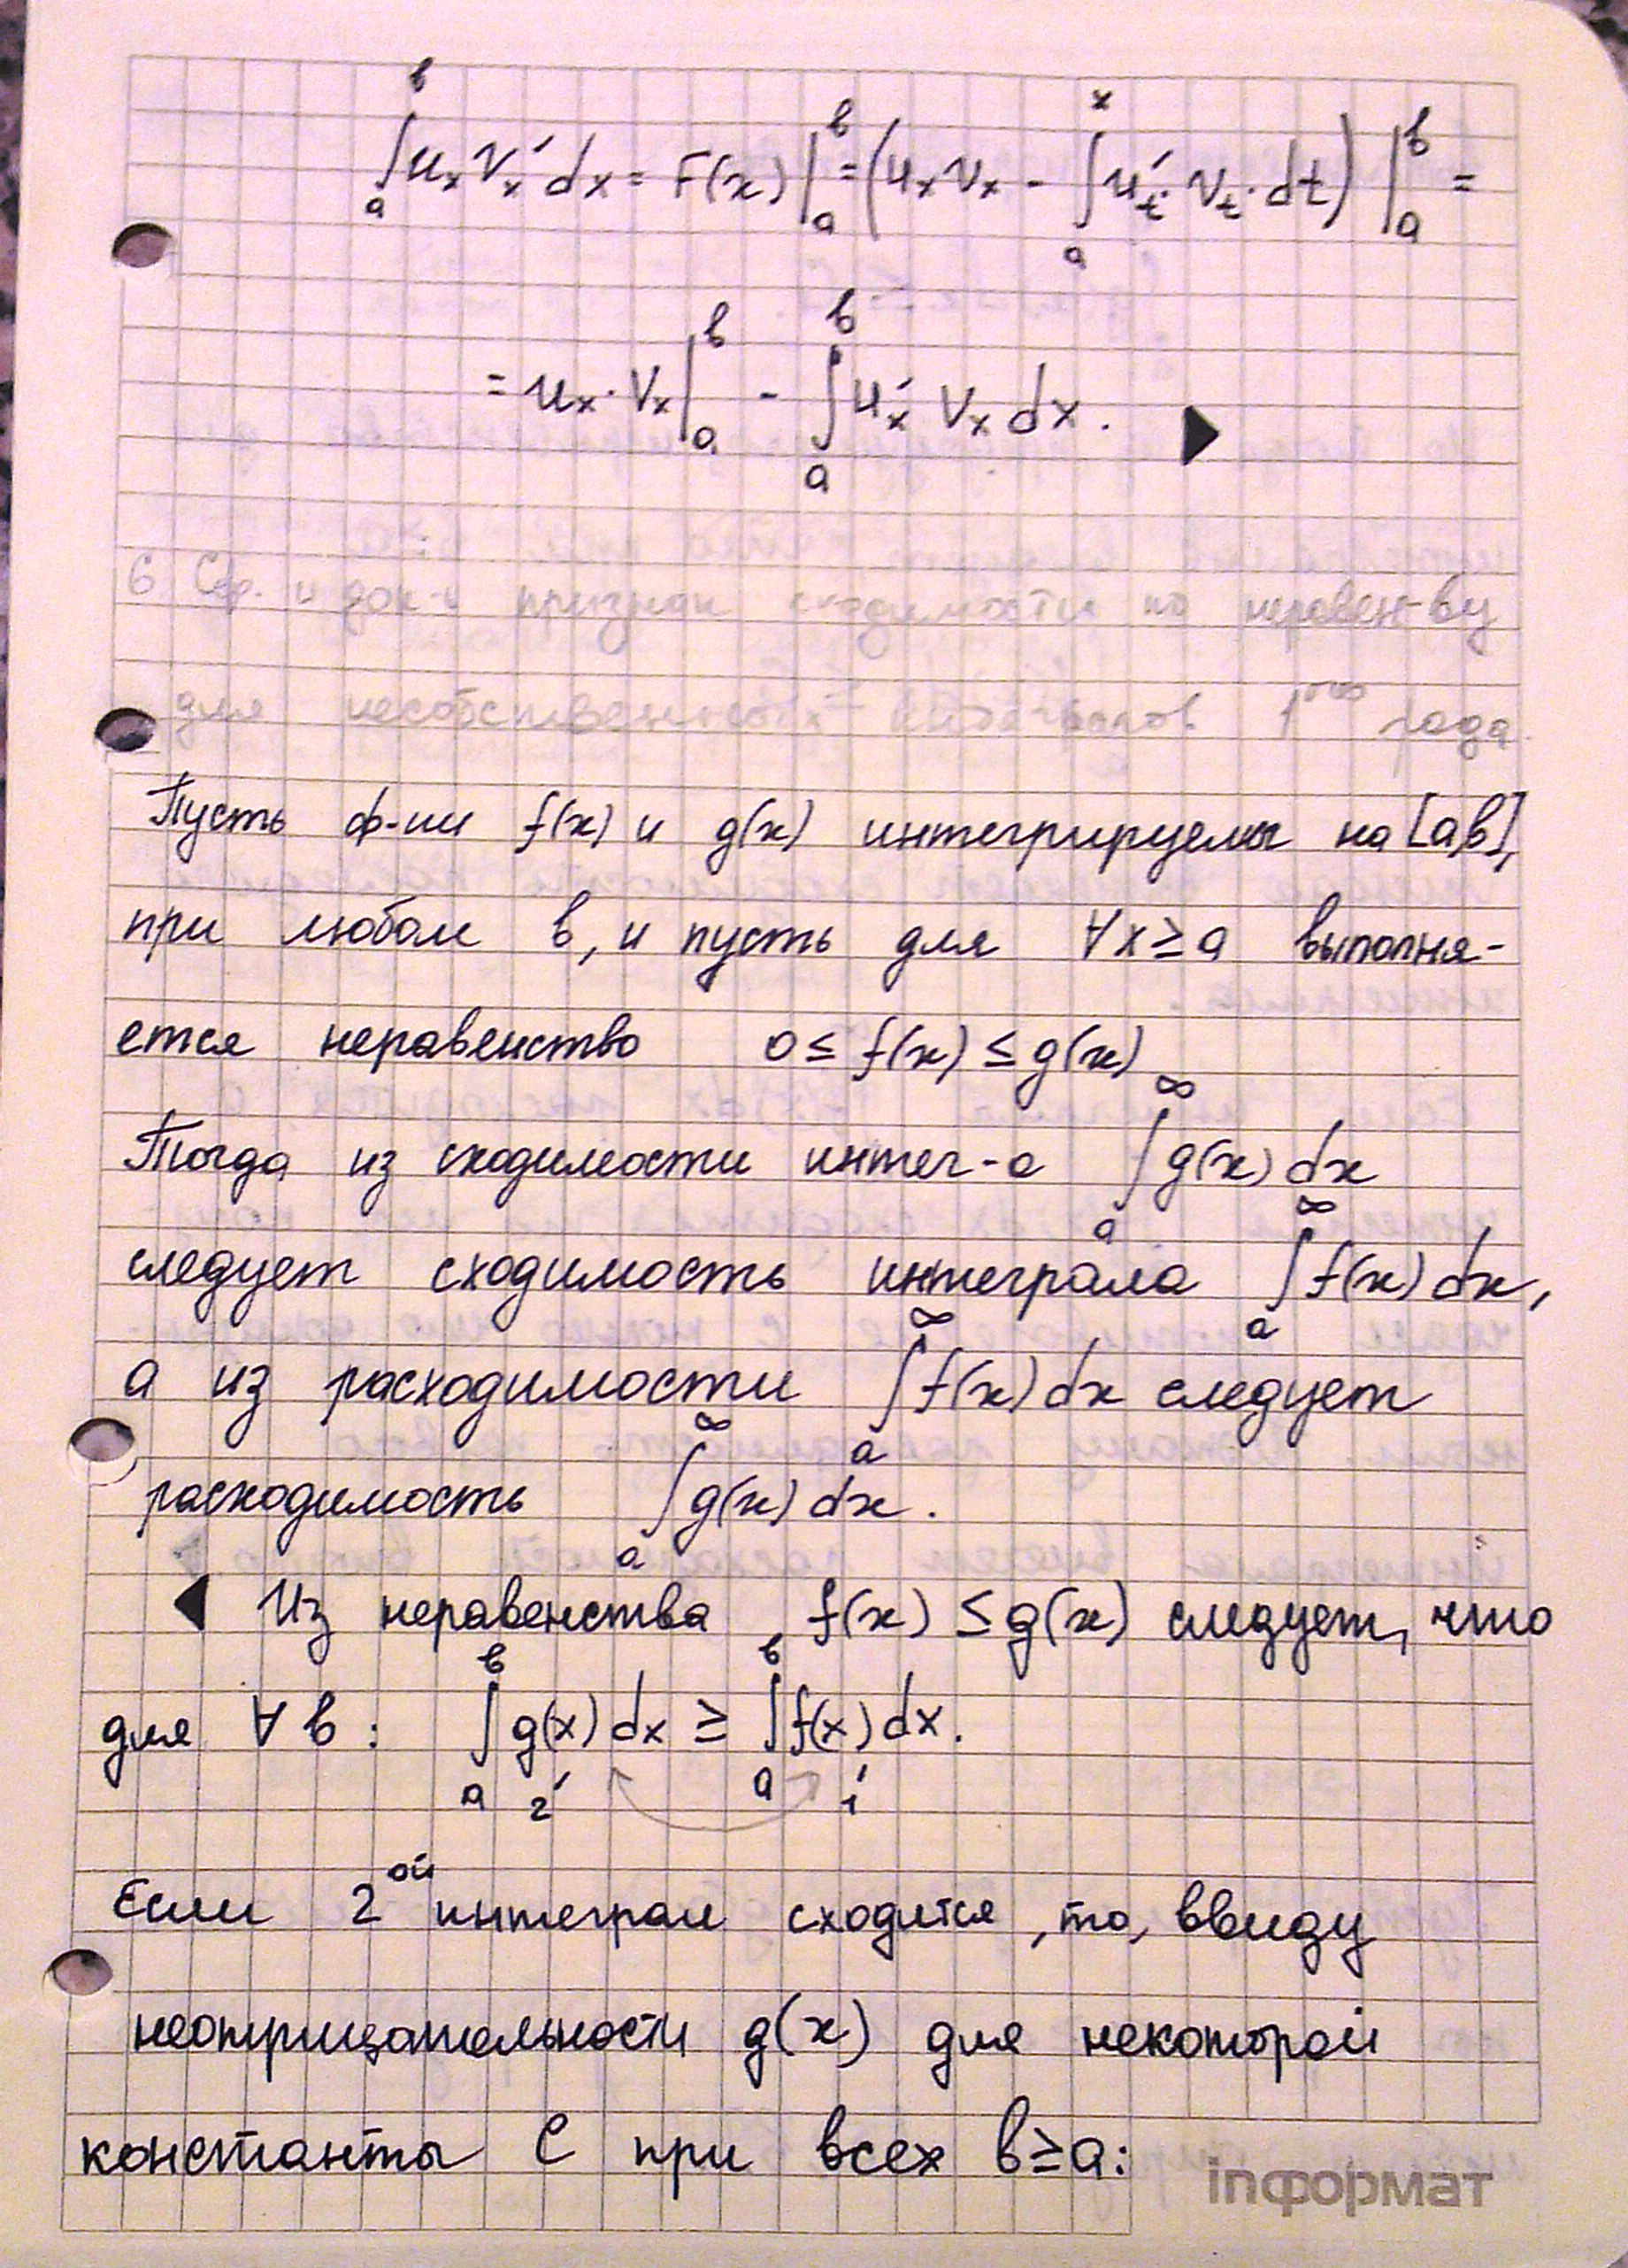 ∫ₐᵇ uₓ vₓ′ dx = F(x) |ₐᵇ = (uₓ vₓ - ∫ₐˣ uₜ′ · vₜ · dt) |ₐᵇ =
= uₓ · vₓ |ₐᵇ - ∫ₐᵇ uₓ′ vₓ dx. ▶
6 Сф. и док-ь признак сходимости по неравен-ву
для несобственных интегралов 1ᵒᵍᵒ рода.
Пусть ф-ии f(x) и g(x) интегрируемы на [a,b],
при любом b, и пусть для ∀x≥a выполня-
ется неравенство 0≤ f(x) ≤ g(x)
Тогда из сходимости интег-а ∫ₐ^∞ g(x) dx
следует сходимость интеграла ∫ₐ^∞ f(x) dx,
а из расходимости ∫ₐ^∞ f(x) dx следует
расходимость ∫ₐ^∞ g(x) dx.
◀ Из неравенства f(x) ≤ g(x) следует, что
для ∀ b: ∫ₐᵇ g(x) dx ≥ ∫ₐᵇ f(x) dx.
2′ 1′
Если 2ᵒⁱ интеграл сходится, то, ввиду
неотрицательности g(x) для некоторой
константы C при всех b≥a:
inформат